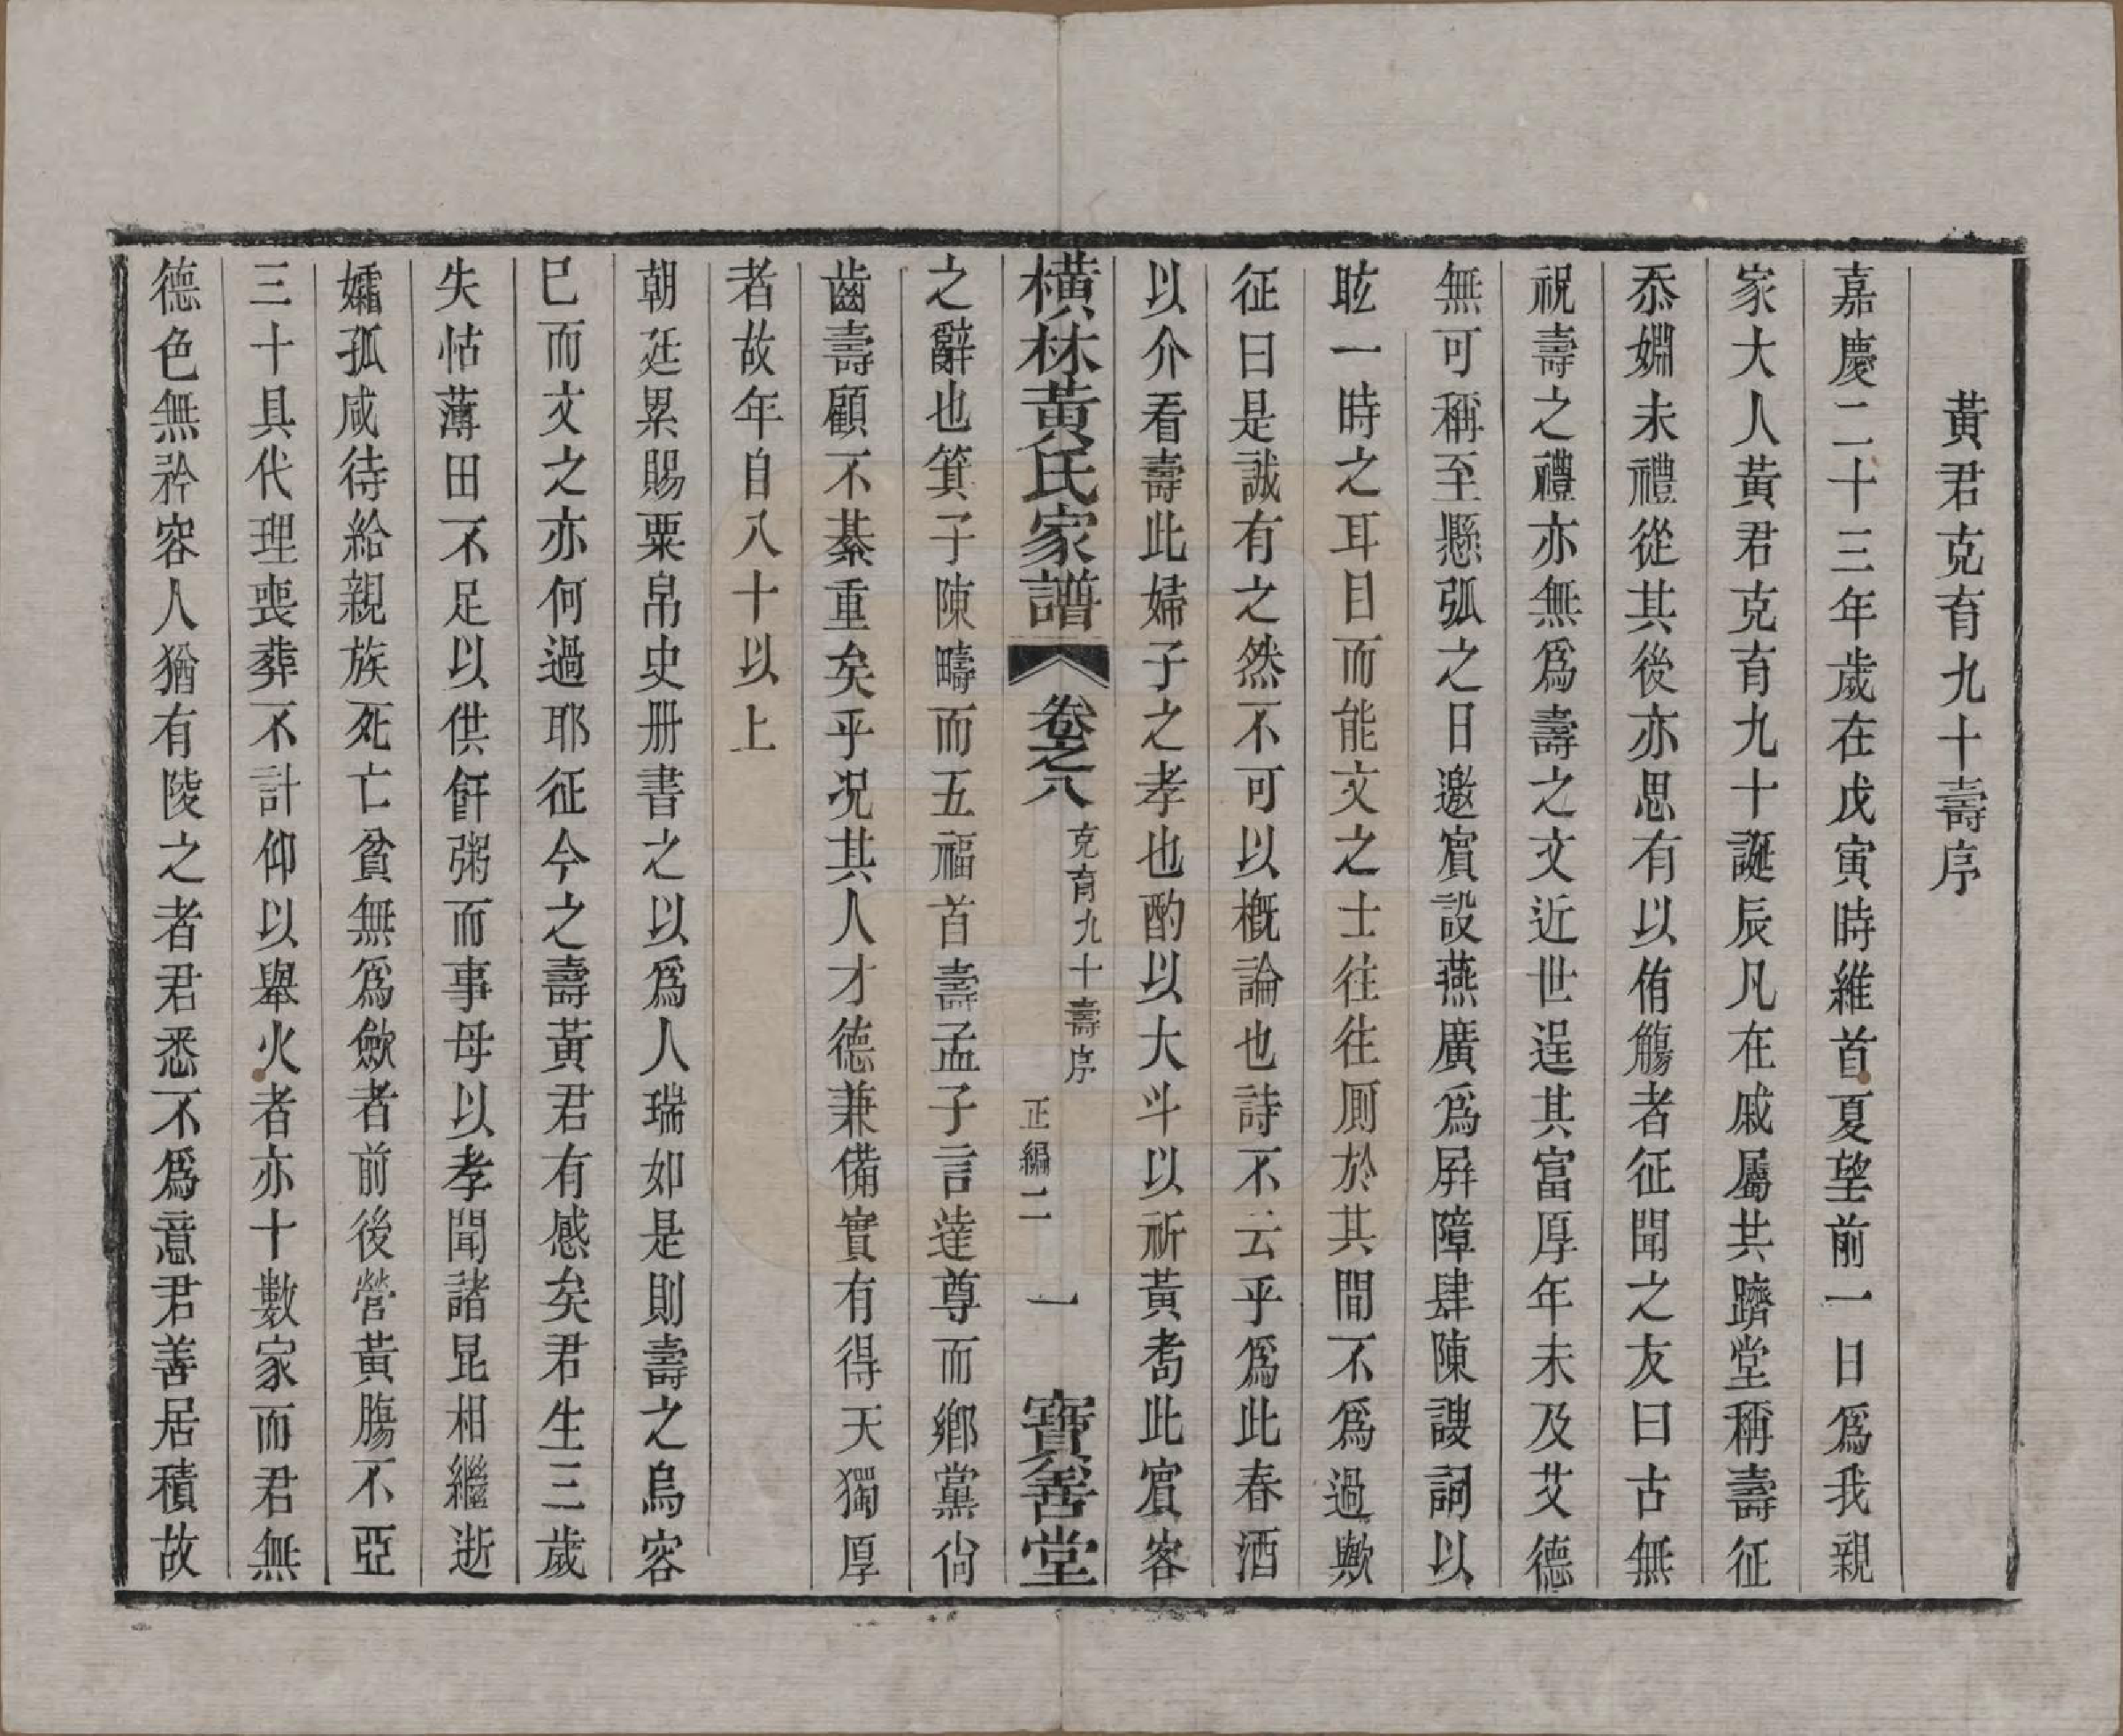 黃君克育九十壽序
嘉慶二十三年歲在戊寅時維首夏望前一日爲我親
家大人黃君克育九十誕辰凡在戚屬共躋堂稱壽征
忝姻未禮從其後亦思有以侑觴者征聞之友曰古無
祝壽之禮亦無爲壽之文近世逞其富厚年未及艾德
無可稱至懸弧之日邀賓設燕廣爲屛障肆陳謏詞以
眩一時之耳目而能文之士往往厠於其間不爲過歟
征曰是誠有之然不可以槪論也詩不云乎爲此春酒
以介看壽此婦子之孝也酌以大斗以祈黃耇此賓客
橫林黃氏家譜 卷之八 克育九十壽序 正編二 一 寶善堂
之辭也箕子陳疇而五福首壽孟子言達尊而鄕黨尙
齒壽顧不綦重矣乎况其人才德兼備實有得天獨厚
者故年自八十以上
朝廷累賜粟帛史册書之以爲人瑞如是則壽之烏容
已而文之亦何過耶征今之壽黃君有感矣君生三歲
失怙薄田不足以供飦粥而事母以孝聞諸昆相繼逝
孀孤咸待給親族死亡貧無爲歛者前後營黃腸不亞
三十具代理喪葬不計仰以舉火者亦十數家而君無
德色無矜容人猶有陵之者君悉不爲意君善居積故